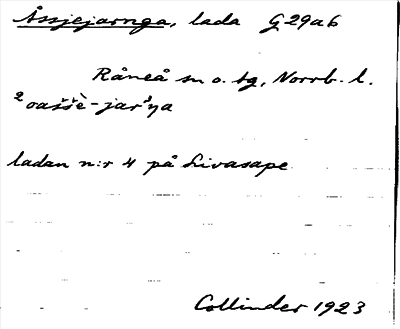 Åssjejarnga, lada G29a6
Råneå sn o. tg, Norrb. l.
²oaššè̮-jarᵌŋa
ladan n:r 4 på Livasape
Collinder 1923